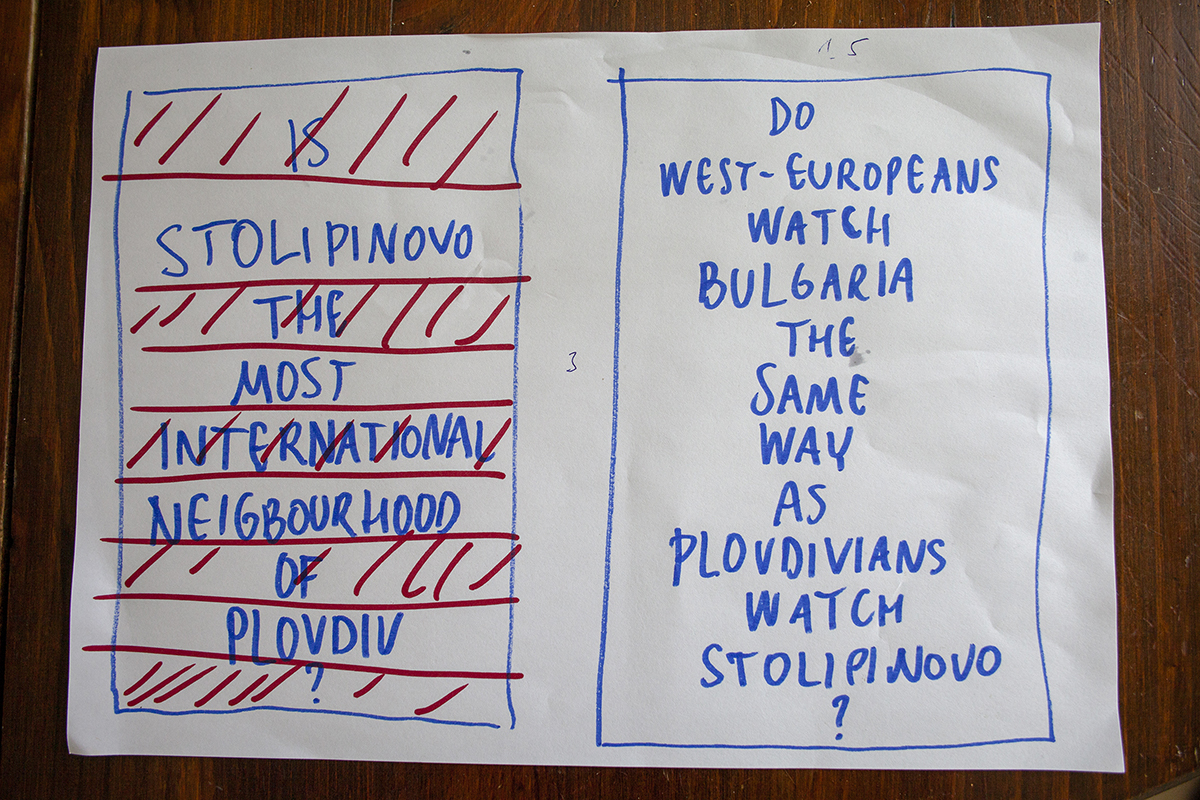 IS
STOLIPINOVO
THE
MOST
INTERNATIONAL
NEIGBOURHOOD
OF
PLOVDIV
?
3
1.5
DO
WEST-EUROPEANS
WATCH
BULGARIA
THE
SAME
WAY
AS
PLOVDIVIANS
WATCH
STOLIPINOVO
?